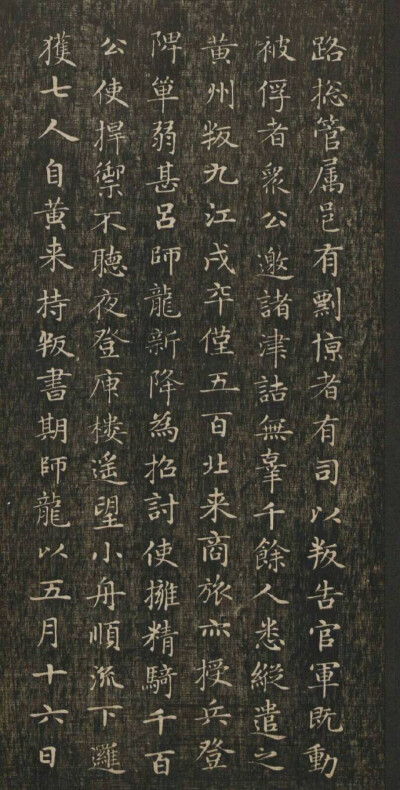 路揔管属邑有剽惊者有司以叛告官军既動
被俘者衆公邀諸津詰無辜千餘人悉縱遣之
黄州叛九江戍卒僅五百北来商旅亦授兵登
陴单弱甚吕師龍新降為招討使擁精騎千百
公使捍禦不聽夜登庾樓遥望小舟順流下邏
獲七人自黄来持叛書期師龍以五月十六日